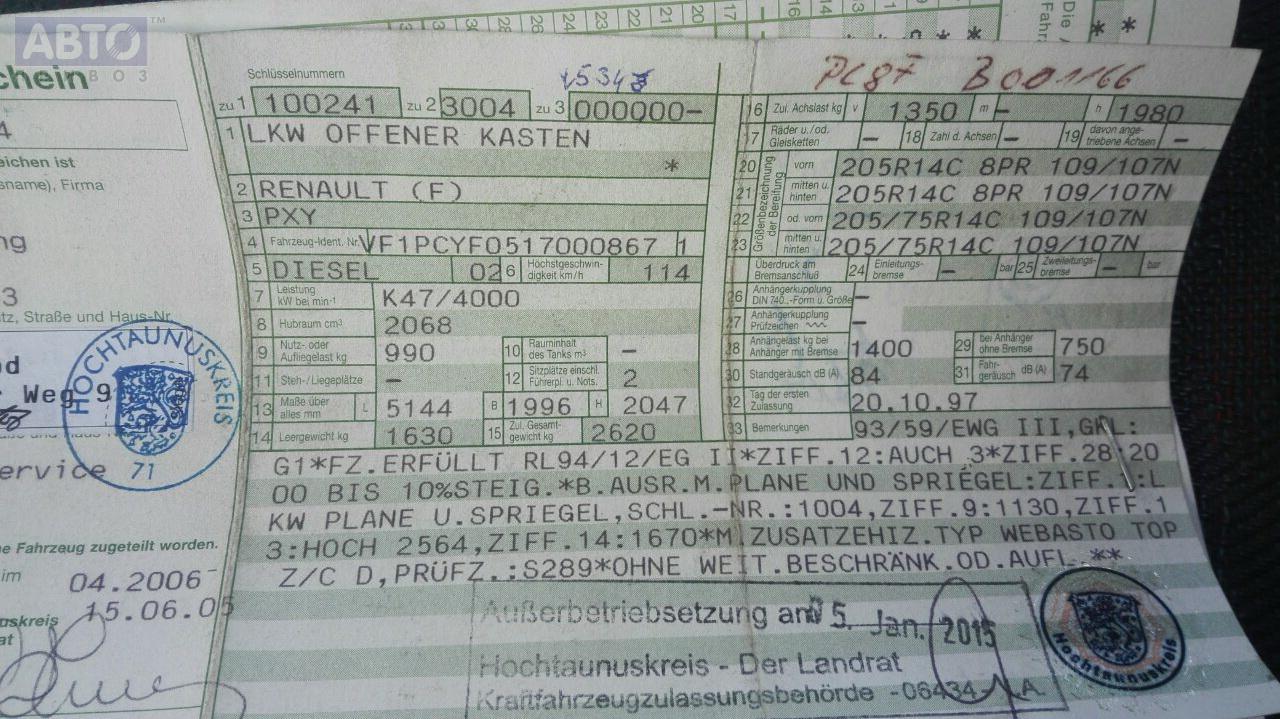 АВТО
ВОЗ
chein
4
eichen ist
sname), Firma
ng
3
tz, Straße und Haus-Nr.
od
Weg 9
HOCHTAUNUSKREIS
71
ervice
ne Fahrzeug zugeteilt worden.
im 04.2006
uskreis 15.06.05
at
Schlüsselnummern
zu 1 100241 zu 2 3004 zu 3 000000-
1 LKW OFFENER KASTEN
*
2 RENAULT (F)
3 PXY
4 Fahrzeug-Ident. Nr. VF1PCYF0517000867 1
5 DIESEL 02 6 Höchstgeschwindigkeit km/h 114
7 Leistung kW bei min-1 K47/4000
8 Hubraum cm³ 2068
9 Nutz- oder Aufliegelast kg 990 10 Rauminhalt des Tanks m³ -
11 Steh-/Liegeplätze - 12 Sitzplätze einschl. Führerpl. u. Nots. 2
13 Maße über alles mm L 5144 B 1996 H 2047
14 Leergewicht kg 1630 15 Zul. Gesamtgewicht kg 2620
PC87 B001166
16 Zul. Achslast kg v 1350 m - h 1980
17 Räder u./od. Gleisketten - 18 Zahl d. Achsen - 19 davon angetriebene Achsen -
Größenbezeichnung der Bereifung
20 vorn 205R14C 8PR 109/107N
21 mitten u. hinten 205R14C 8PR 109/107N
22 od. vorn 205/75R14C 109/107N
23 mitten u. hinten 205/75R14C 109/107N
Überdruck am Bremsanschluß 24 Einleitungsbremse - bar 25 Zweileitungsbremse - bar
26 Anhängerkupplung DIN 740..-Form u. Größe -
27 Anhängerkupplung Prüfzeichen -
28 Anhängelast kg bei Anhänger mit Bremse 1400 29 bei Anhänger ohne Bremse 750
30 Standgeräusch dB (A) 84 31 Fahrgeräusch dB (A) 74
32 Tag der ersten Zulassung 20.10.97
33 Bemerkungen 93/59/EWG III,GKL:
G1*FZ.ERFÜLLT RL94/12/EG II*ZIFF.12:AUCH 3*ZIFF.28:20
00 BIS 10%STEIG.*B.AUSR.M.PLANE UND SPRIEGEL:ZIFF.1:L
KW PLANE U.SPRIEGEL,SCHL.-NR.:1004,ZIFF.9:1130,ZIFF.1
3:HOCH 2564,ZIFF.14:1670*M.ZUSATZEHIZ.TYP WEBASTO TOP
Z/C D,PRÜFZ.:S289*OHNE WEIT.BESCHRÄNK.OD.AUFL.**
Außerbetriebsetzung am 05. Jan. 2015
Hochtaunuskreis - Der Landrat
Kraftfahrzeugzulassungsbehörde -06434
Hochtaunuskreis